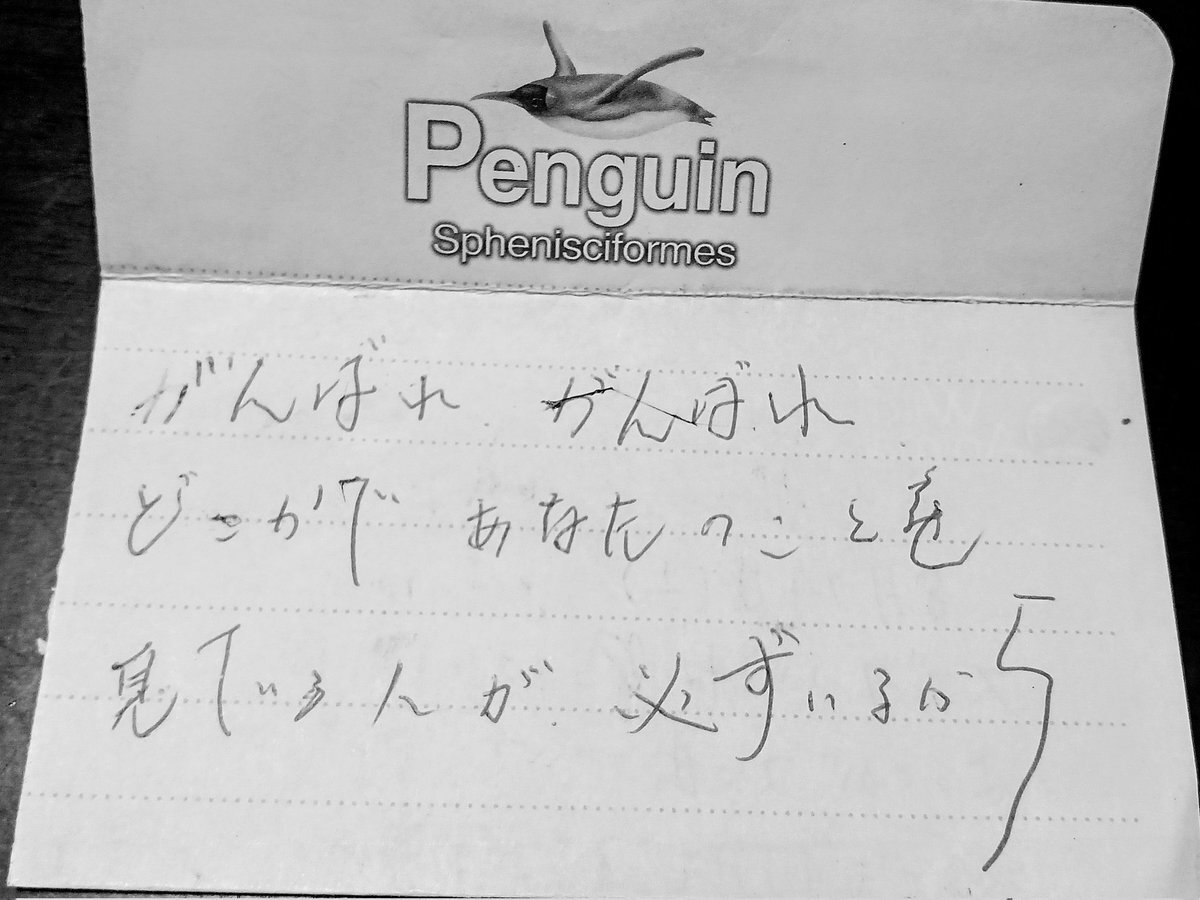 Penguin
Sphenisciformes
がんばれ がんばれ
どこかで あなたのことを
見ている人が 必ずいるから